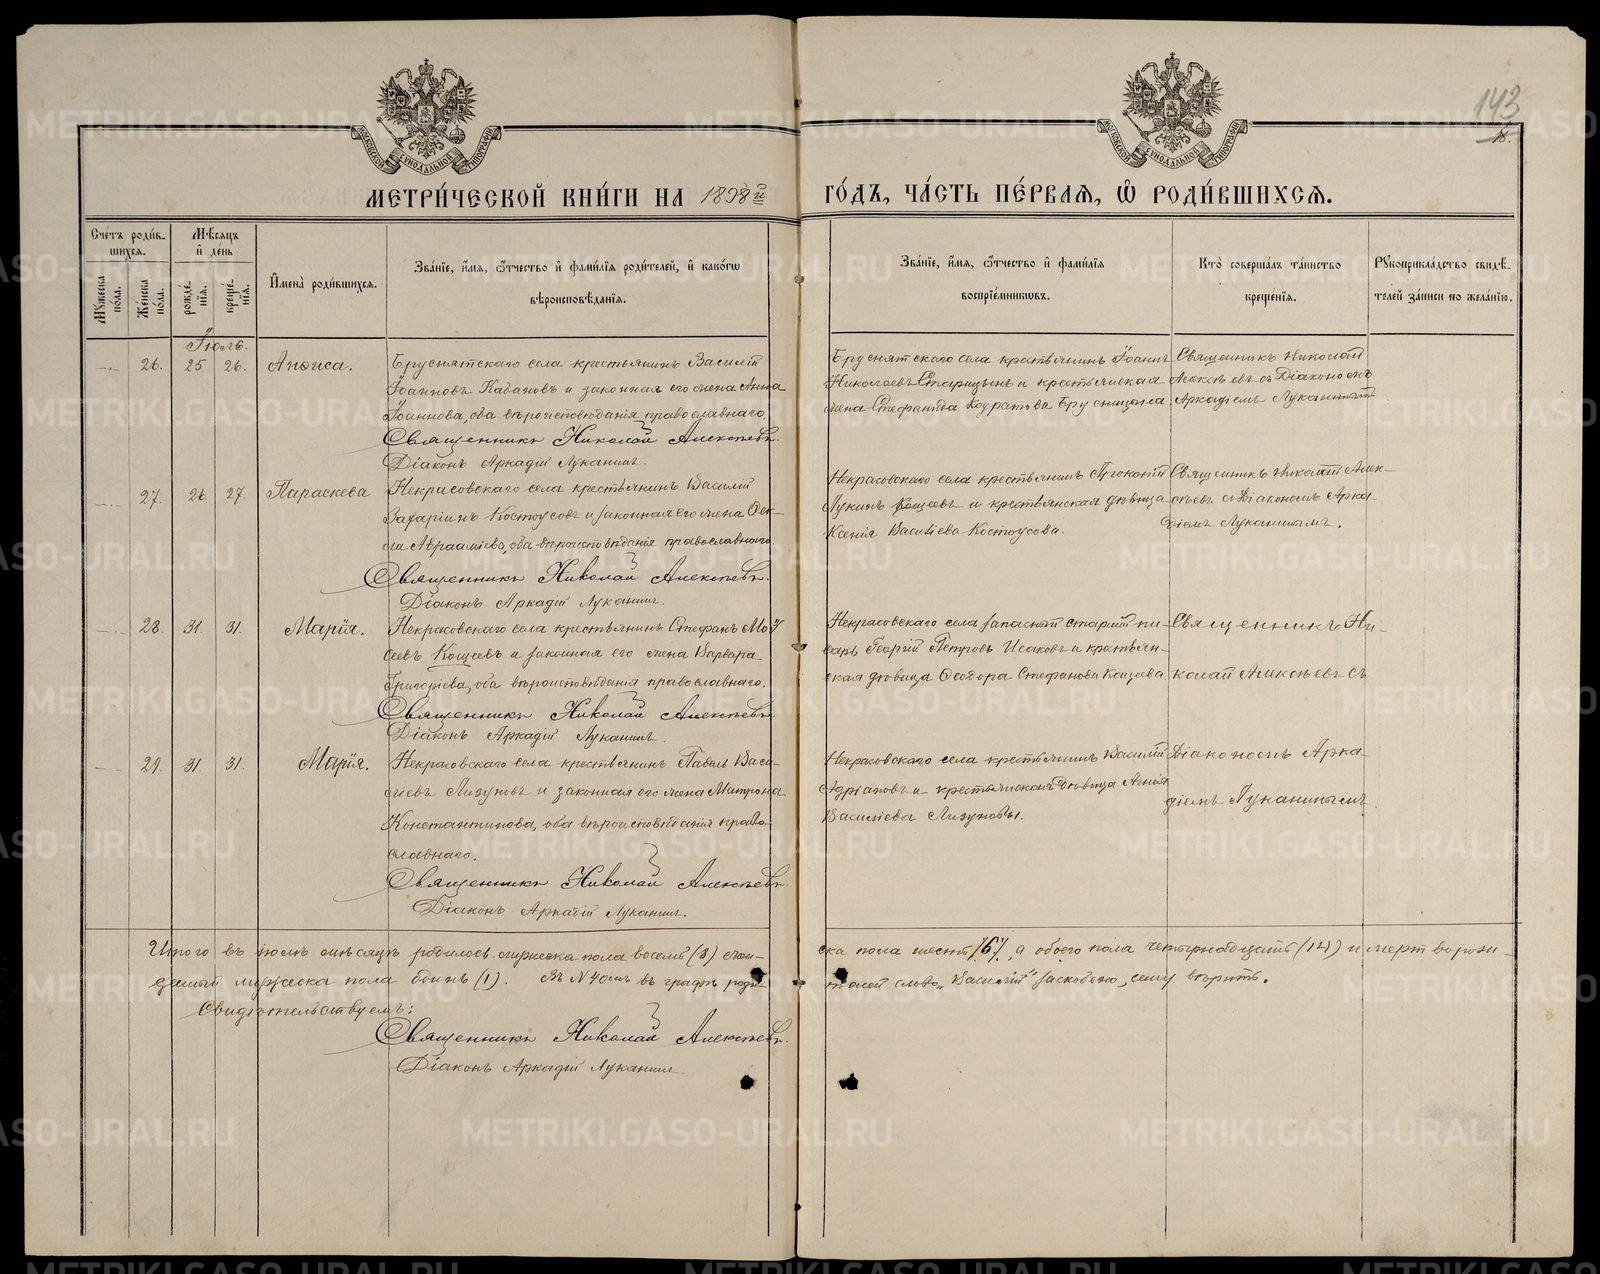 143
МОСКОВСКОЙ СѴНОДАЛЬНОЙ ТИПОГРАФІИ
МОСКОВСКОЙ СѴНОДАЛЬНОЙ ТИПОГРАФІИ
МЕТРИ́ЧЕСКОЙ КНИ́ГИ НА 1898й
ГО́ДЪ, ЧА́СТЬ ПЕ́РВАѦ, Ѿ РОДИ́ВШИХСѦ.
Сче́тъ роди́в-
шихсѧ.
Мꙋ́жеска по́ла.
Же́нска по́ла.
Мѣ́сѧцъ
и҆ де́нь
рожде́-
нїѧ.
креще́-
нїѧ.
И҆мена̀ роди́вшихсѧ.
Зва́нїе, и҆́мѧ, ѻ҆́тчество и҆ фами́лїѧ роди́телей, и҆ како́гѡ
вѣроисповѣ́данїѧ.
Зва́нїе, и҆́мѧ, ѻ҆́тчество и҆ фами́лїѧ
воспрїе́мникѡвъ.
Кто̀ соверша́лъ та́инство
креще́нїѧ.
Рꙋкоприкла́дство свидѣ́-
телей за́писи по жела́нію.
Іюль.
26. 25 26. Анѳиса.
Бруснятскаго села крестьянинъ Василій
Іоанновъ Кабановъ и законная его жена Анна
Іоаннова, оба вѣроисповѣданія православнаго.
Священникъ Николай Алексѣевъ.
Діаконъ Аркадій Луканинъ.
Бруснятскаго села крестьянинъ Іоаннъ
Николаевъ Старицынъ и крестьянская
жена Стефанида Кодратова Брусницына
Священникъ Николай
Алексѣевъ съ Діакономъ
Аркадіемъ Луканинымъ
27. 26. 27. Параскева
Некрасовскаго села крестьянинъ Василій
Захаріинъ Костоусовъ и законная его жена Ѳек-
ла Авраамиева, оба вѣроисповѣданія православнаго.
Священникъ Николай Алексѣевъ.
Діаконъ Аркадій Луканинъ.
Некрасовскаго села крестьянинъ Прокопій
Лукинъ Кощеевъ и крестьянская дѣвица
Ксенія Васильева Костоусова.
Священникъ Николай Алек-
сѣевъ съ Діакономъ Арка-
діемъ Луканинымъ.
28. 31. 31. Марія.
Некрасовскаго села крестьянинъ Стефанъ Мо-
сеевъ Кощеевъ и законная его жена Варвара
Григоріева, оба вѣроисповѣданія православнаго.
Священникъ Николай Алексѣевъ.
Діаконъ Аркадій Луканинъ.
Некрасовскаго села запасной старшій пи-
сарь Георгій Петровъ Исаковъ и крестьян-
ская дѣвица Ѳеодора Стефанова Кощеева
Священникъ Ни-
колай Алексѣевъ съ
29. 31. 31. Марія.
Некрасовскаго села крестьянинъ Павелъ Васи-
льевъ Лизуновъ и законная его жена Матрона
Константинова, оба вѣроисповѣданія право-
славнаго.
Священникъ Николай Алексѣевъ.
Діаконъ Аркадій Луканинъ.
Некрасовскаго села крестьянинъ Василій
Адріановъ и крестьянская дѣвица Агнія
Васильева Лизуновы.
Діакономъ Арка-
діемъ Луканинымъ.
Итого въ іюлѣ мѣсяцѣ родилось мужеска пола восемь (8) жен-
ска пола шесть (6), а обоего пола четырнадцать (14) и мертворож-
денный мужеска пола одинъ (1). Въ № 40мъ въ графѣ роди-
телей слово „Василій" заскоблено, сему вѣрить.
Свидѣтельствуемъ:
Священникъ Николай Алексѣевъ.
Діаконъ Аркадій Луканинъ.
METRIKI.GASO-URAL.RU